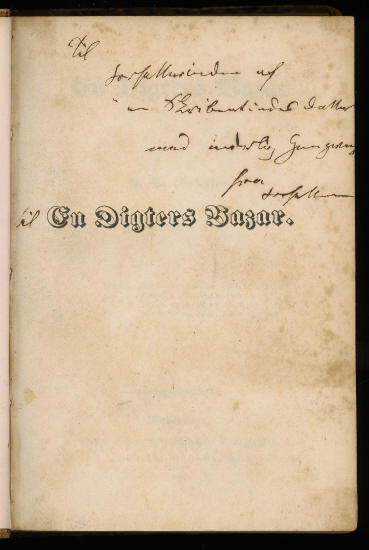 Til
Forfatterinden af
"en Skribentindes Datter"
med inderlig Hengivenhed
fra
Forfatteren
til En Digters Bazar.